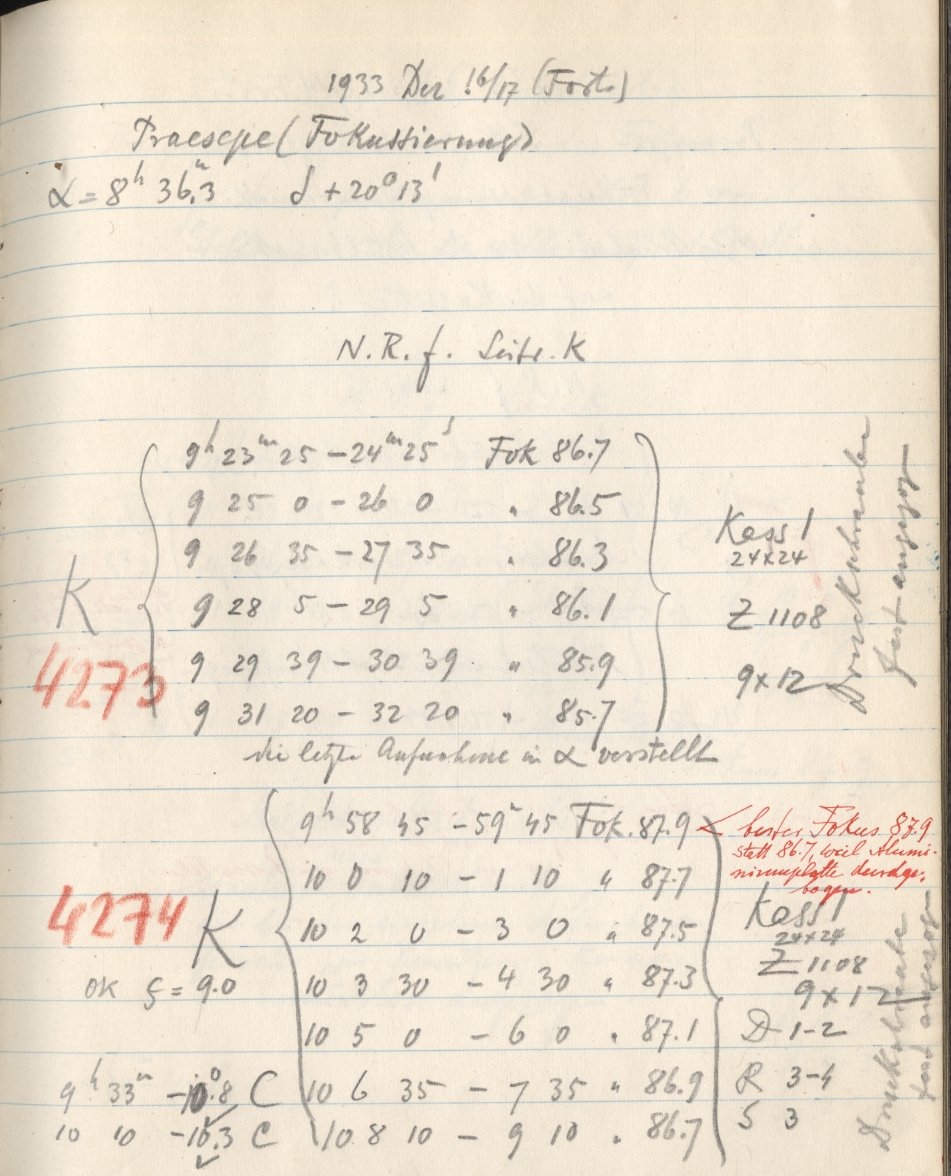 1933 Dez 16/17 (Forts.)
Praesepe (Fokussierung)
α = 8ʰ 36.ᵐ3 δ + 20° 13'
N.R.f. Seite K
9ʰ 23ᵐ 25 – 24ᵐ 25ˢ Fok 86.7
9 25 0 – 26 0 " 86.5
9 26 35 – 27 35 " 86.3
9 28 5 – 29 5 " 86.1
9 29 39 – 30 39 " 85.9
9 31 20 – 32 20 " 85.7
K
4273
Kass 1
24x24
Z 1108
9x12
Druckschraube
fest angezog
die letzte Aufnahme in α verstellt
9ʰ 58 45 – 59ᵐ 45 Fok. 87.9
10 0 10 – 1 10 " 87.7
10 2 0 – 3 0 " 87.5
10 3 30 – 4 30 " 87.3
10 5 0 – 6 0 " 87.1
10 6 35 – 7 35 " 86.9
10 8 10 – 9 10 " 86.7
4274 K
OK S = 9.0
9ʰ 33ᵐ –10°.8 C
10 10 –10.3 C
< bester Fokus 87.9
statt 86.7, weil Alumi-
niumplatte durchge-
bogen.
Kass 1
24x24
Z 1108
9x12
D 1-2
R 3-4
S 3
Druckschraube
fest angezog